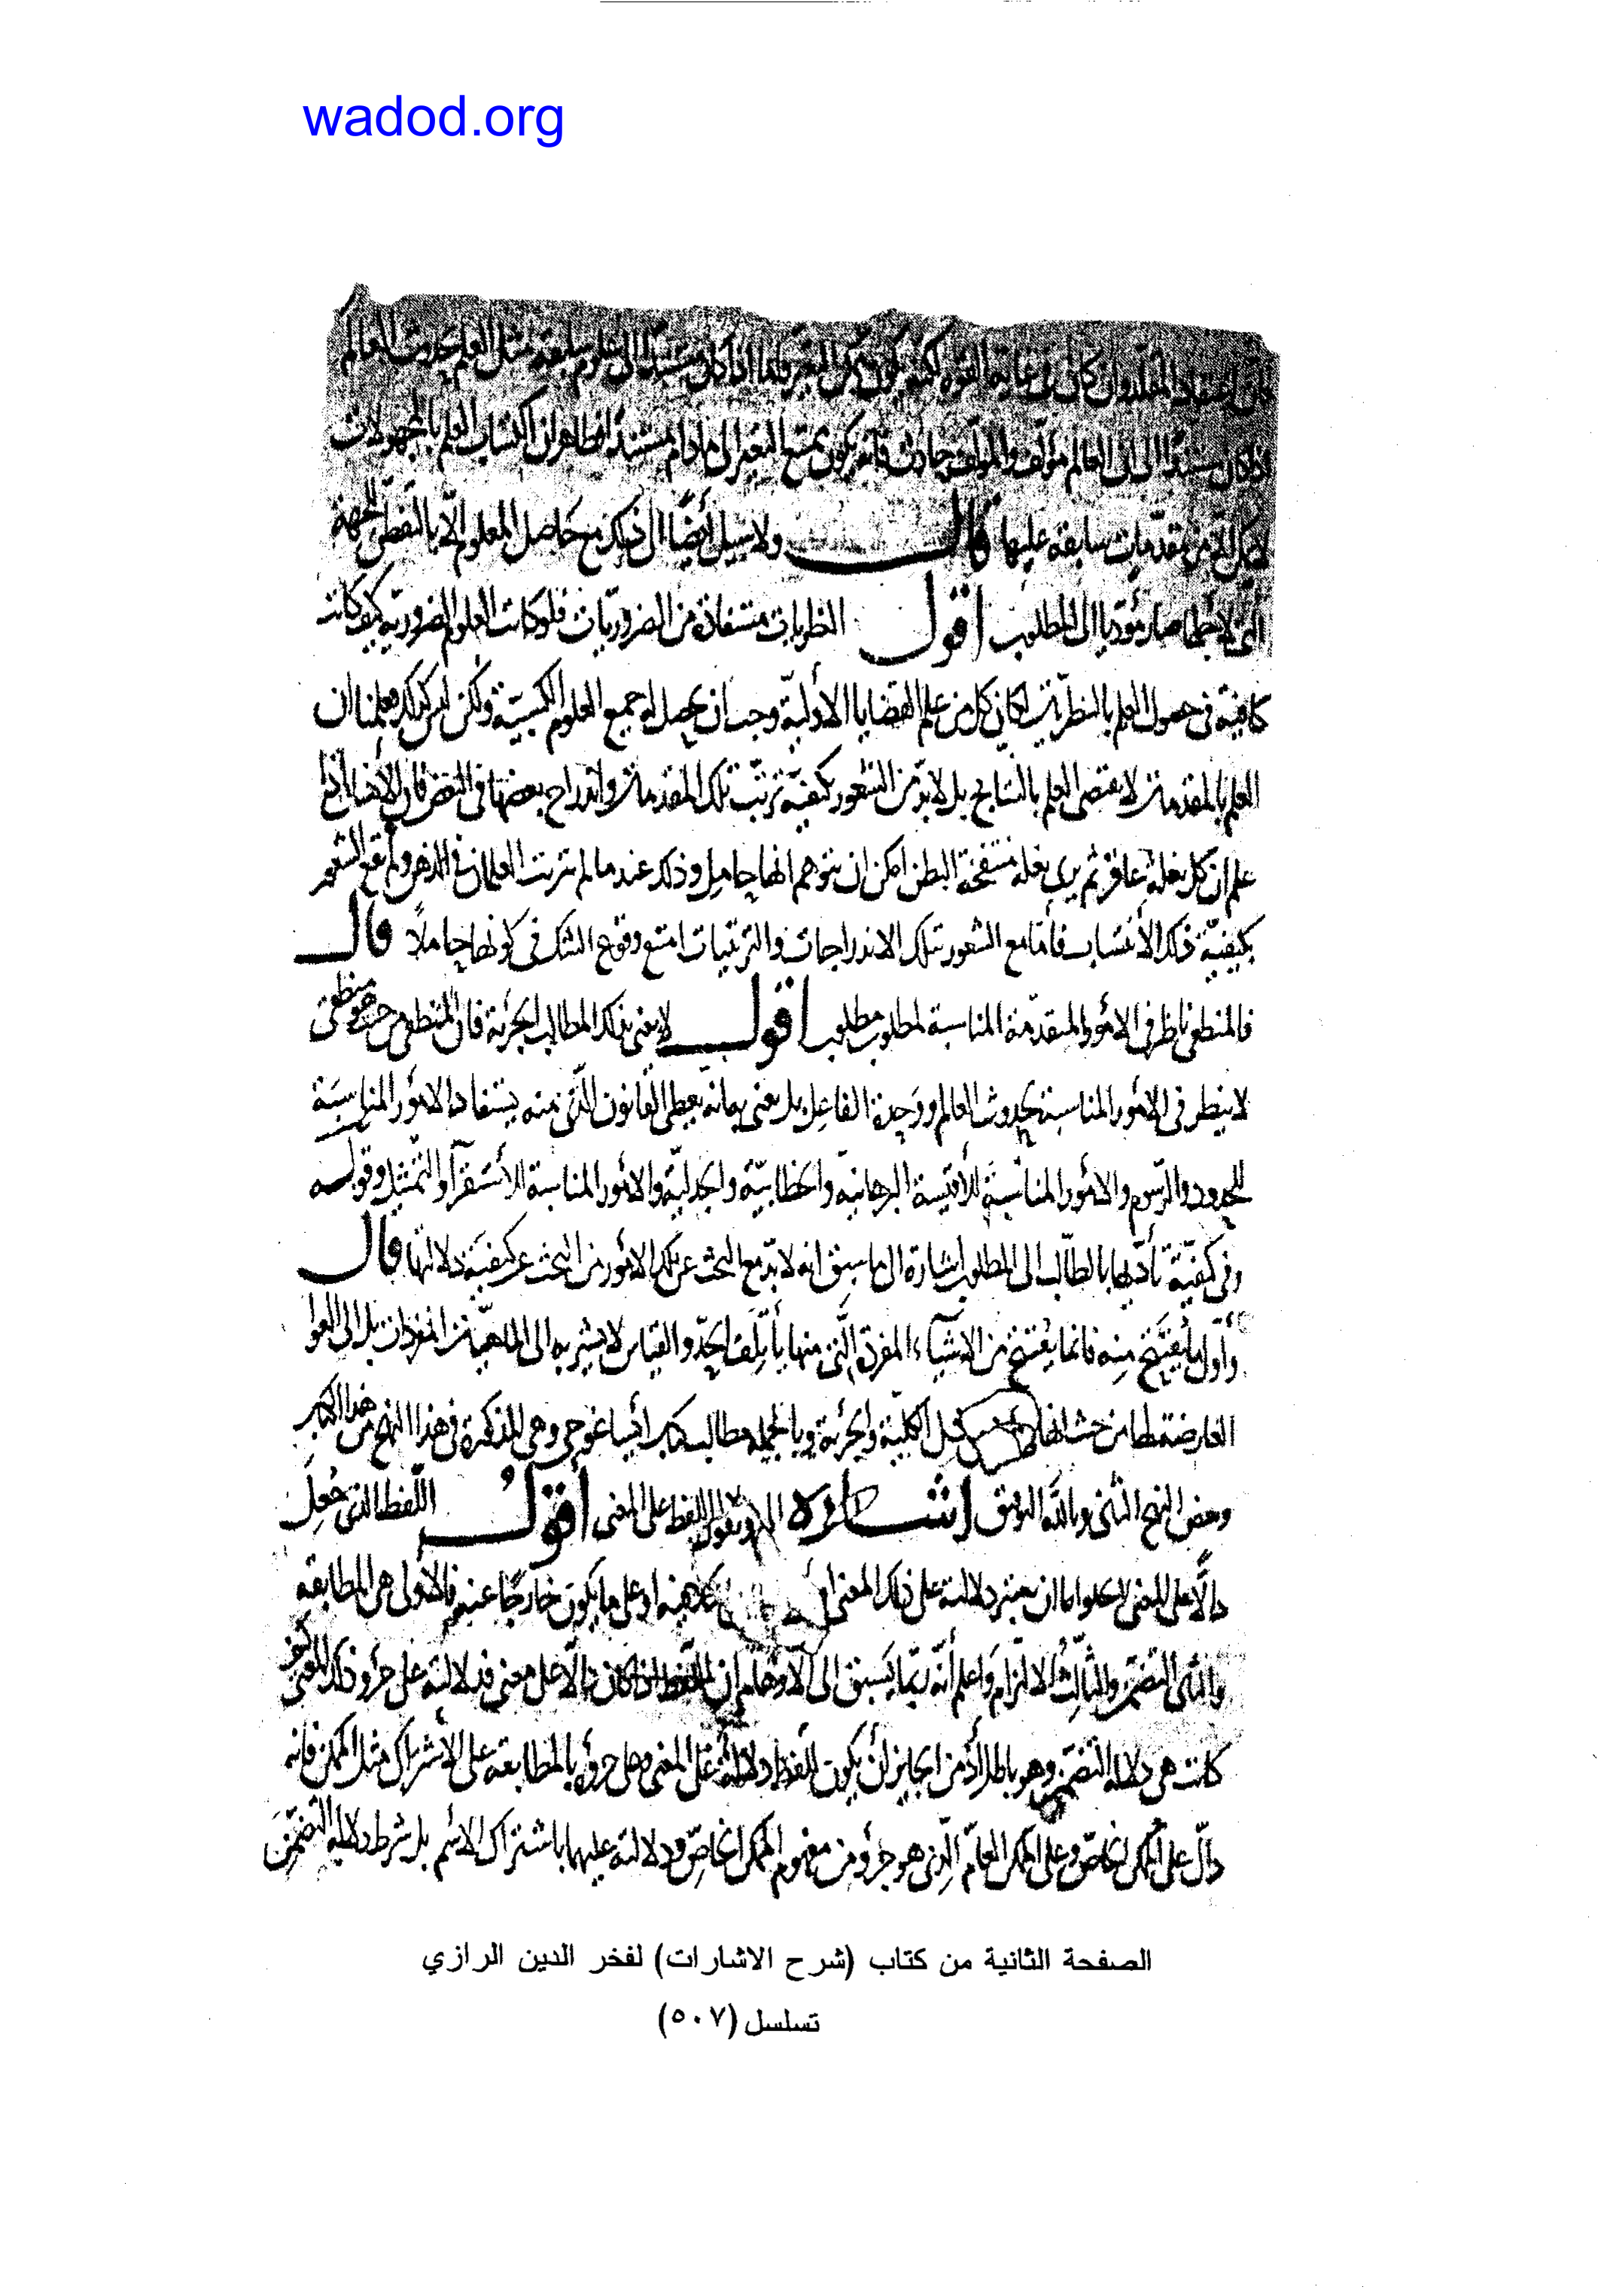 wadod.org
فان اعتقاد المقلد وان كان في غاية القوة لكنه يكون ممكن التغير فاما اذا كان مستندا الى علوم سابقة مثل العلم بحدوث العالم
اذا كان مستندا الى ان العالم مؤلف والمؤلف حادث فانه يكون ممتنع التغير ما دام مستندا فظاهر ان اكتساب العلم بالمجهولات
لا يمكن الا من مقدمات سابقة عليها قال ولا سبيل أيضًا الى ذلك مع حاصل المعلوم الّا بالتفطن للجهة
التي لاجلها صار مؤديا الى المطلوب اقول النظريات مستفادة من الضروريات فلو كانت العلوم الضرورية كيف كانت
كافية في حصول العلم بالنظريات لكان كل من علم القضايا الأوليّة وجب ان يحصل له جميع العلوم الكسبيّة ولكن ليس كذلك فعلمنا ان
العلم بالمقدمات لا يقتضى العلم بالنتايج بل لا بدّ من الشعور بكيفيّة ترتّب تلك المقدمات واندراج بعضها في البعض فان الانسان اذا
علم ان كل بغلة عاقر ثم يرى بغلة منتفخة البطن امكن ان يتوهم انها حامل وذلك عند ما لم يترتب العلمان في الذهن ولم يقع الشعور
بكيفيّة ذلك الأنتساب فأمّا مع الشعور بتلك الاندراجات والترتيبات امتنع وقوع الشك في كونها حاملًا قال
فالمنطقي ناظر في الامور المتقدّمة المناسبة لمطلوب مطلوب اقول لا يعنى بذلك المطالب الجزئية فان المنطقي من حيث هو منطقي
لا ينظر في الامور المناسبة لحدوث العالم ووحدة الفاعل بل يعنى به انه يعطى القانون الّذى منه يستفاد الامور المناسبة
للحدود والرّسوم والامور المناسبة للأقيسة البرهانيّة والخطابيّة والجدليّة والامور المناسبة للأستقرآ والتمثيل وقوله
وفي كيفيّة تأديها بالطّالب الى المطلوب اشارة الى ما سبق انه لا بدّ مع البحث عن تلك الامور من البحث عن كيفيّة دلالتها قال
وأوّل ما يفتتح منه فانما يفتتح من الاشيآء المفردة الّتى منها يأتلف الحدّ والقياس لا يشير به الى الماهيّات المفردات بل الى العوا
العارضة لها من حيث انها كل من قبل الكلية والجزئية وبالجملة مطالب كتاب ايساغوجي وهي المذكورة في هذا النهج من هذا الكتاب
وبعض النهج الثاني وبالله التوفيق اشارة الى دلالة اللفظ على المعنى أقولُ اللّفظ الذي جُعِل
دالًّا على المعنى لا يخلو اما ان يعتبر دلالته على ذلك المعنى او او على ما يكون خارجًا عنه فالاولى هى المطابقة
والثانى التضمّن والثّالث الالتزام واعلم أنّه ربّما يسبق الى الأوهام ان اللفظ اذا كان دالّا على معنى فدلالته على جزؤ ذلك المعنى
كانت هى دلالة التضمّن وهو باطل اذ من الجايز أن يكون للفظ دلالة على المعنى وعلى جزؤه بالمطابقة على الأشتراك مثل الممكن فانه
دالّ على الممكن الخاصّ وعلى الممكن العامّ الّذى هو جزؤ من مفهوم الممكن الخاصّ ودلالته عليهما باشتراك الاسم بل شرط دلالة التضمّن
الصفحة الثانية من كتاب (شرح الاشارات) لفخر الدين الرازي
تسلسل (٥٠٧)